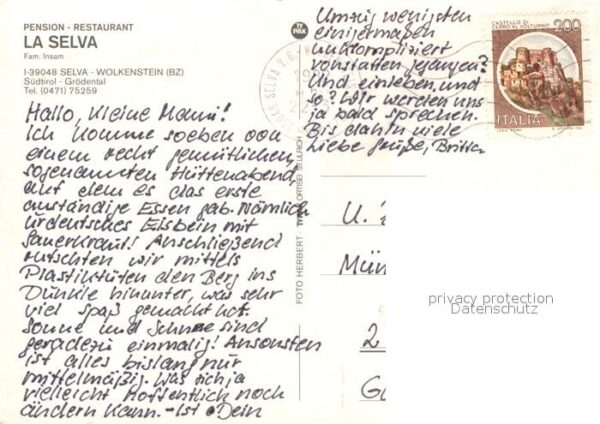 PENSION - RESTAURANT
LA SELVA
Fam. Insam
I-39048 SELVA - WOLKENSTEIN (BZ)
Südtirol - Grödental
Tel. (0471) 75259
Hallo, kleine Mami!
Ich komme soeben von
einem recht gemütlichen,
sogenannten Hüttenabend,
auf dem es das erste
anständige Essen gab. Nämlich
urdeutsches Eisbein mit
Sauerkraut! Anschließend
rutschten wir mittels
Plastiktüten den Berg ins
Dunkle hinunter, was sehr
viel spaß gemacht hat.
Sonne und Schnee sind
geradezu einmalig! Ansonsten
ist alles bislang nur
mittelmäßig. Was sich ja
vielleicht hoffentlich noch
ändern kann. - Ist Dein
Umzug wenigsten
einigermaßen
unkompliziert
vonstatten gegangen?
Und einleben, und
so? Wir werden uns
ja bald sprechen.
Bis dahin viele
liebe Grüße, Britta
PAK
FOTO HERBERT - ORTISEI ST. ULRICH
SELVA
CASTELLO DI
CERRO AL VOLTURNO
200
ITALIA
U.
Mün
2
G
privacy protection
Datenschutz